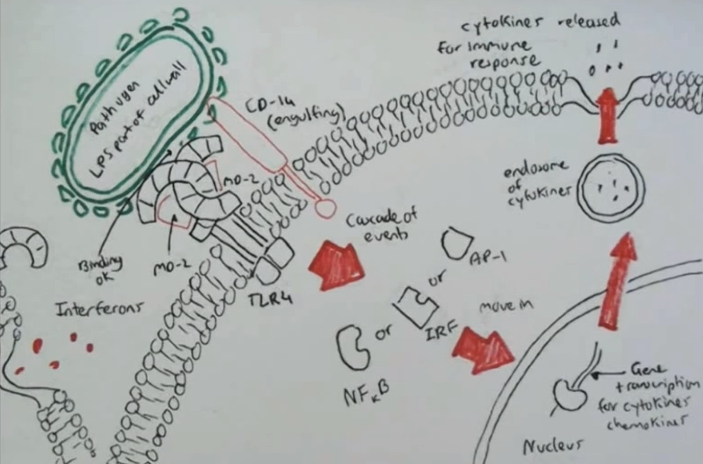 cytokines released
for immune
response
Pathogen
LPS part of cell wall
CD-14
(engulfing)
MD-2
endosome
of
cytokines
Binding
ok
MD-2
TLR4
Cascade of
events
or
AP-1
Interferons
or
IRF
move in
NFκB
Gene
transcription
for cytokines
chemokines
Nucleus